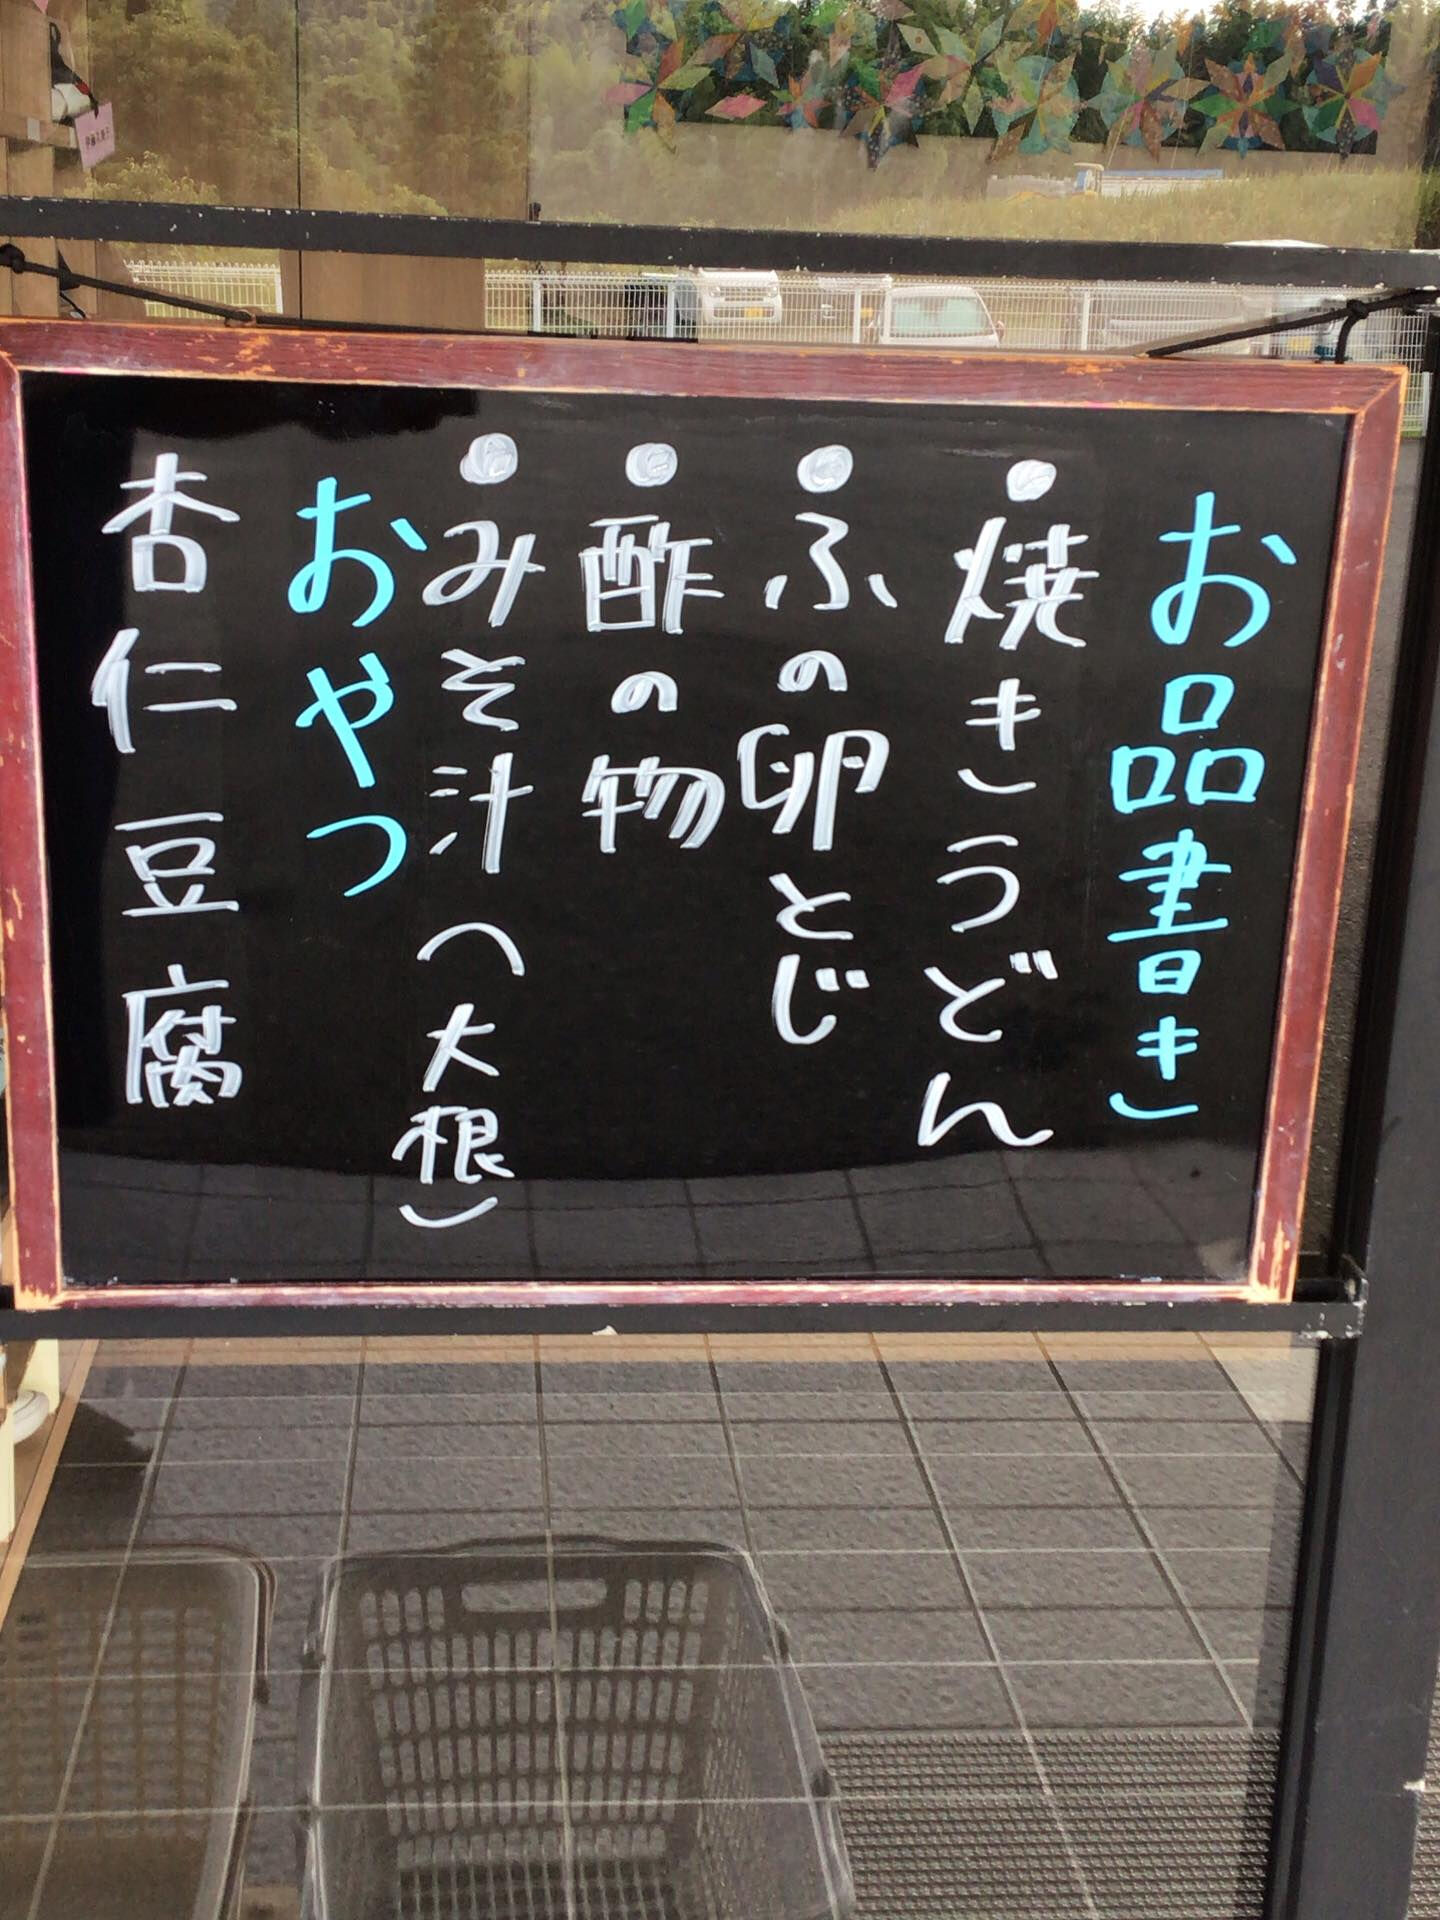 お品書き
●焼きうどん
●ふの卵とじ
●酢の物
●みそ汁(大根)
おやつ
杏仁豆腐